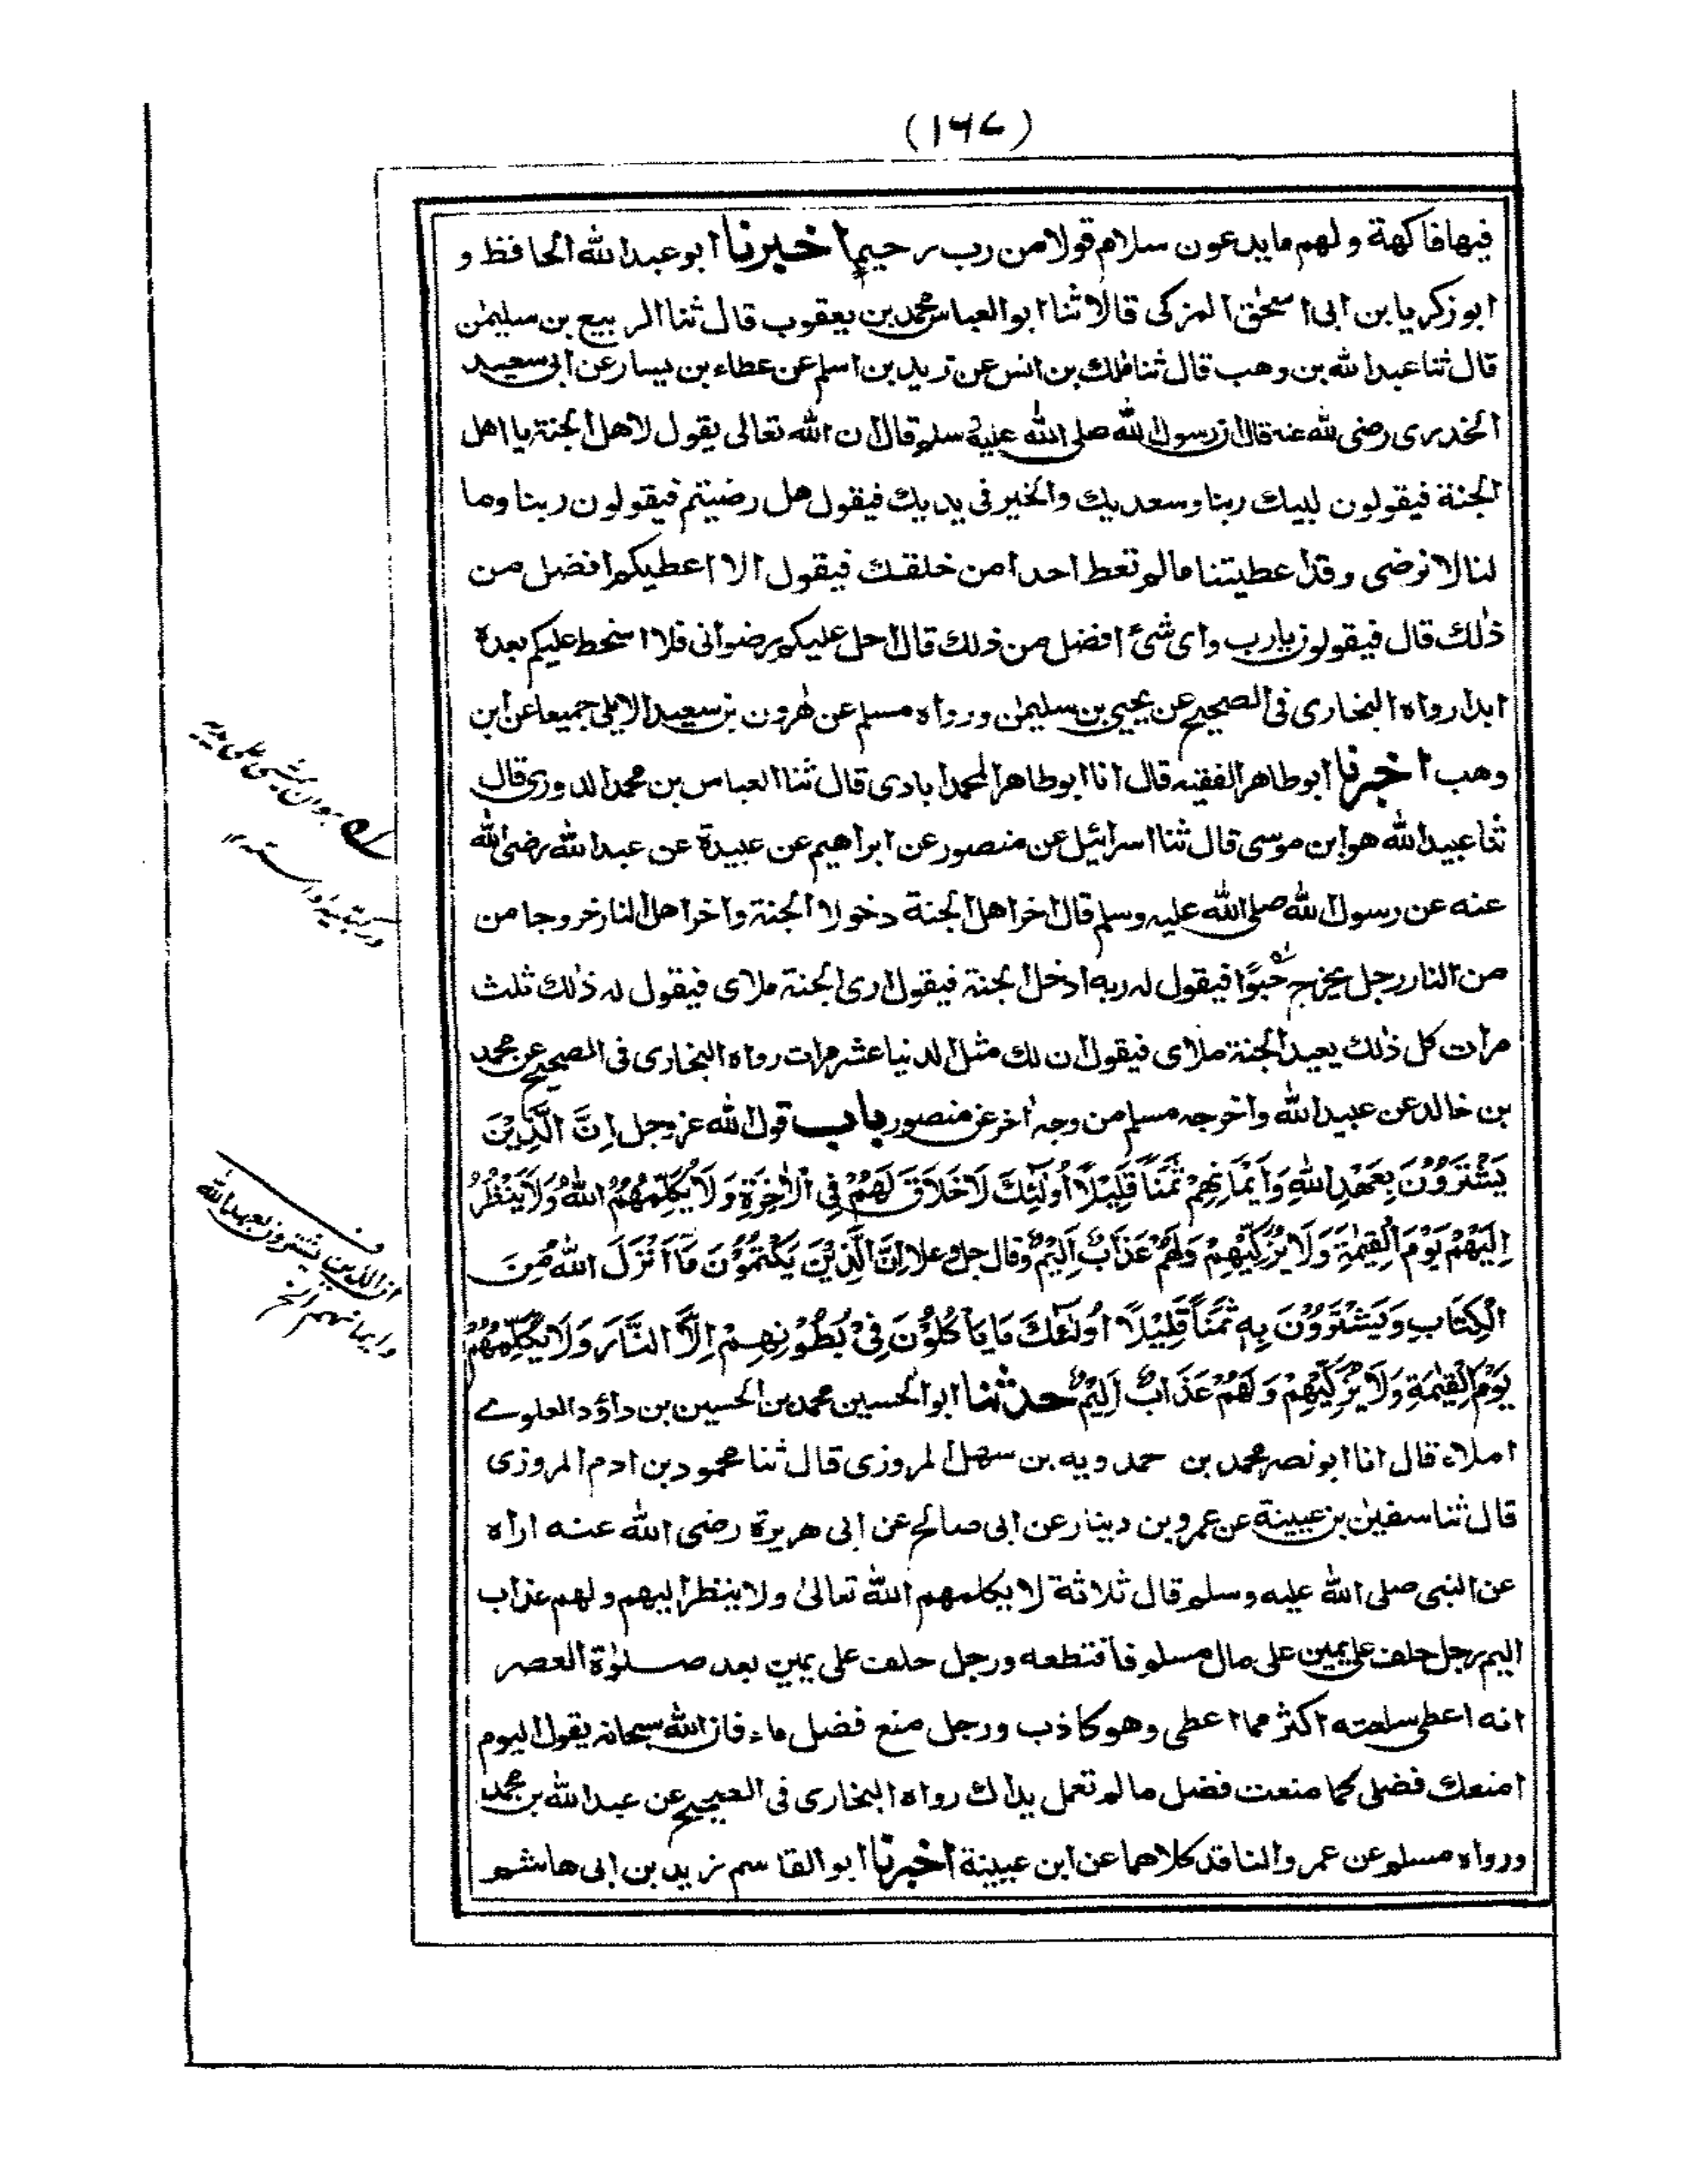 (١٦٧)
فيها فاكهة ولهم ما يدعون سلام قولا من رب رحيم اخبرنا ابو عبد الله الحافظ و
ابو زكريا بن ابى اسحٰق المزكى قالا ثنا ابو العباس محمد بن يعقوب قال ثنا الربيع بن سليمٰن
قال ثنا عبد الله بن وهب قال ثنا مٰلك بن انس عن زيد بن اسلم عن عطاء بن يسار عن ابى سعيد
الخدرى رضى الله عنه قال ان رسول الله صلى الله عليه وسلم قال ان الله تعالى يقول لاهل الجنة يا اهل
الجنة فيقولون لبيك ربنا وسعديك والخير فى يديك فيقول هل رضيتم فيقولون ربنا وما
لنا لا نرضى وقد اعطيتنا ما لم تعط احدا من خلقك فيقول الا اعطيكم افضل من
ذٰلك قال فيقولون يارب واى شئ افضل من ذلك قال احل عليكم رضوانى فلا اسخط عليكم بعده
ابدا رواه البخارى فى الصحيح عن يحيى بن سليمٰن ورواه مسلم عن هٰرون بن سعيد الايلى جميعا عن ابن
وهب اخبرنا ابو طاهر الفقيه قال انا ابو طاهر المحمدابادى قال ثنا العباس بن محمد الدورى قال
ثنا عبيد الله هو ابن موسى قال ثنا اسرائيل عن منصور عن ابراهيم عن عبيدة عن عبد الله رضى الله
عنه عن رسول الله صلى الله عليه وسلم قال اخر اهل الجنة دخولا الجنة واخر اهل النار خروجا من
من النار رجل يخرج حَبْوًا فيقول له ربه ادخل الجنة فيقول ارى الجنة ملاى فيقول له ذٰلك ثلث
مرات كل ذٰلك يعيد الجنة ملاى فيقول ان لك مثل الدنيا عشر مرات رواه البخارى فى الصحيح عن محمد
بن خالد عن عبيد الله واخرجه مسلم من وجه اخر عن منصور باب قول الله عز وجل اِنَّ الَّذِيْنَ
يَشْتَرُوْنَ بِعَهْدِ اللهِ وَاَيْمَانِهِمْ ثَمَنًا قَلِيْلًا اُولٰٓئِكَ لَا خَلَاقَ لَهُمْ فِى الْاٰخِرَةِ وَلَا يُكَلِّمُهُمُ اللهُ وَلَا يَنْظُرُ
اِلَيْهِمْ يَوْمَ الْقِيٰمَةِ وَلَا يُزَكِّيْهِمْ وَلَهُمْ عَذَابٌ اَلِيْمٌ وقال جل وعلا اِنَّ الَّذِيْنَ يَكْتُمُوْنَ مَا اَنْزَلَ اللهُ مِنَ
الْكِتَابِ وَيَشْتَرُوْنَ بِهٖ ثَمَنًا قَلِيْلًا اُولٰٓئِكَ مَا يَاْكُلُوْنَ فِىْ بُطُوْنِهِمْ اِلَّا النَّارَ وَلَا يُكَلِّمُهُمُ
يَوْمَ الْقِيٰمَةِ وَلَا يُزَكِّيْهِمْ وَلَهُمْ عَذَابٌ اَلِيْمٌ حدثنا ابو الحسين محمد بن الحسين بن داؤد العلوى
املاء قال انا ابو نصر محمد بن حمدويه بن سهل المروزى قال ثنا محمود بن ادم المروزى
قال ثنا سفيٰن بن عيينة عن عمرو بن دينار عن ابى صالح عن ابى هريرة رضى الله عنه اراه
عن النبى صلى الله عليه وسلم قال ثلاثة لا يكلمهم الله تعالىٰ ولا ينظر اليهم ولهم عذاب
اليم رجل حلف على يمين على مال مسلم فاقتطعه ورجل حلف على يمين بعد صلوٰة العصر
انه اعطى سلعته اكثر مما اعطى وهو كاذب ورجل منع فضل ماء فان الله سبحانه يقول اليوم
امنعك فضلى كما منعت فضل ما لم تعمل يداك رواه البخارى فى الصحيح عن عبد الله بن محمد
ورواه مسلم عن عمرو الناقد كلاهما عن ابن عيينة اخبرنا ابو القاسم زيد بن ابى هاشم
هو ان يمشى على يديه
وركبتيه او استه
ان الذين يشترون بعهد الله
وايمانهم الخ